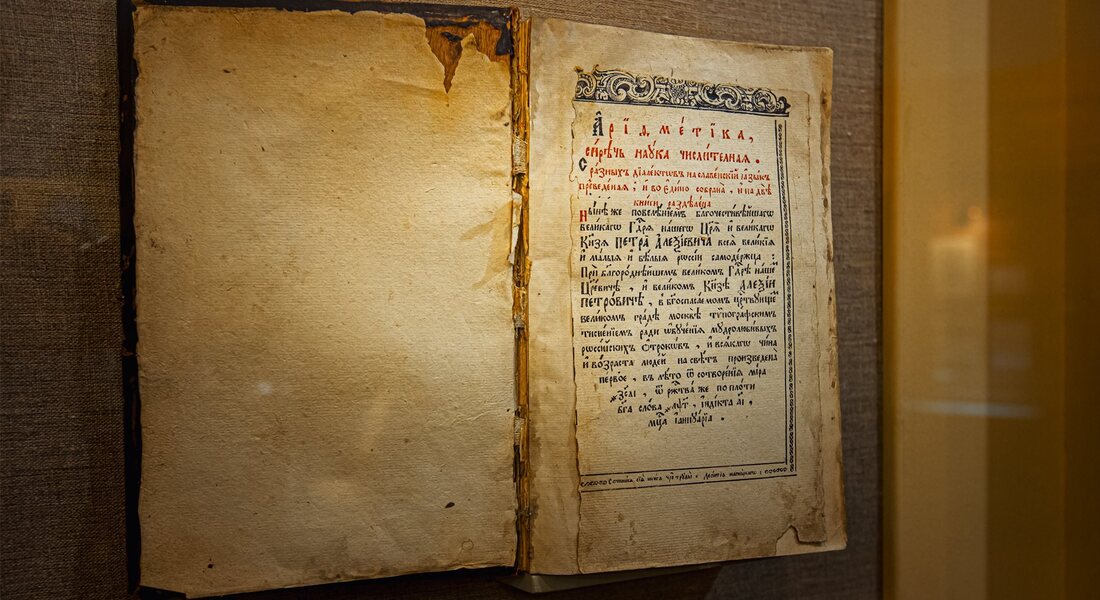 А҆рїѳме́тїка,
си́рѣчь наꙋ́ка числи́телнаѧ.
С ра́зныхъ дїале́ктѡвъ на славе́нскїй ꙗ҆зы́къ
преведе́наѧ, и҆ во є҆ди́но собрана̀, и҆ на двѣ̀
книги раздѣлена̀
Ны́нѣ же повелѣ́нїемъ бл҃гочести́вѣйшагѡ
вели́кагѡ Гдⷭ҇рѧ на́шегѡ Цр҃ѧ̀ и҆ вели́кагѡ
Кнѧ́зѧ ПЕТРА̀ А҆ЛЕѮІ́ЕВИЧА всеѧ̀ вели́кїѧ
и҆ ма́лыѧ и҆ бѣ́лыѧ рѡссі́и самоде́ржца :
Прѝ благоро́днѣйшемъ вели́комъ Гдⷭ҇рѣ̀ на́шемъ
Цр҃е́вичѣ, и҆ вели́комъ Кнѧ́зѣ А҆ЛЕѮІ́И
ПЕТРО́ВИЧѢ, в̾ бг҃оспаса́емомъ црⷭ҇твꙋющемъ
вели́комъ гра́дѣ москвѣ̀ тѷпогра́фскимъ
тисне́нїемъ ра́ди ѡ҆бꙋче́нїѧ мꙋдролюби́выхъ
рѡссі́йскихъ ѻ҆́трокѡвъ, и҆ всѧ́кагѡ чи́на
и҆ во́зраста люде́й на свѣ́тъ произведена̀
пе́рвое, въ лѣ́то ѿ сотворе́нїѧ мі́ра
҂зс҃аі, ѿ ржⷭ҇тва́ же по пло́ти
бг҃а сло́ва ҂аѱ҃г, їнді́кта а҃і,
мцⷭ҇а і҆аннꙋа́рїа.
Сочини́сѧ сїѧ̀ кни́га чрез̾ трꙋды̀ Лео́нтїа магни́цкагѡ :